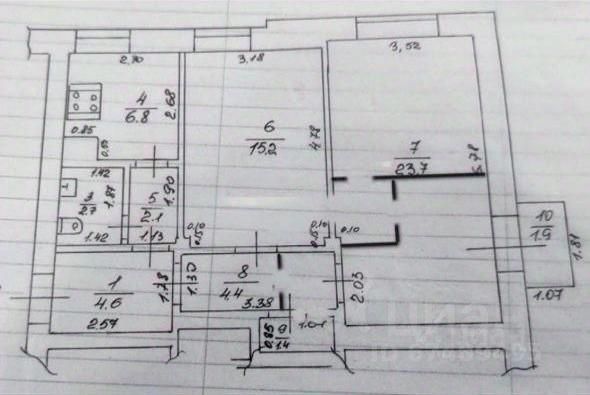 2.70
3,18
3,52
4
6.8
2.68
0.85
6
15,2
4.78
7
23.7
5.78
1.42
1.87
2.7
1.42
5
2.1
1.90
1.13
0.10
0.15
0.10
0.15
0.10
10
1.9
1.81
1.07
1
4.6
2.57
1.78
1.30
8
4.4
3.38
2.03
9
1.4
0.85
1.01